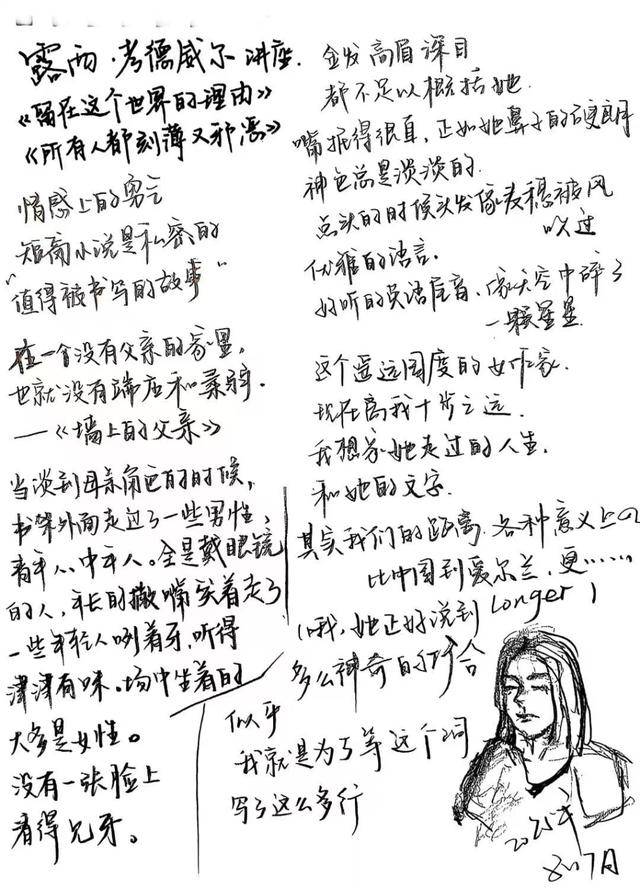 露西·考德威尔讲座.
《留在这个世界的理由》
《所有人都刻薄又邪恶》
情感上的勇气
短篇小说是私密的
"值得被书写的故事"
在一个没有父亲的家里,
也就没有端庄和柔弱.
—《墙上的父亲》
当谈到母亲角色的时候,
书架外面走过了一些男性,
青年人、中年人。全是戴眼镜
的人,年长的撇嘴笑着走了
一些年轻人咧着牙,听得
津津有味。场中坐着的
大多是女性。
没有一张脸上
看得见牙。
金发高眉深目
都不足以概括她.
嘴抿得很直,正如她鼻子的硬朗
神色总是淡淡的.
点头的时候头发像麦穗被风
吹过
优雅的语言.
好听的英语尾音、像天空中碎了
一颗星星.
这个遥远国度的女作家.
现在离我十步之远.
我想象她走过的人生.
和她的文字.
其实我们的距离.各种意义上的
比中国到爱尔兰,更……
(哦,她正好说到 longer)
多么神奇的巧合
似乎
我就是为了等这个词
写了这么多行
2025年
8月7日